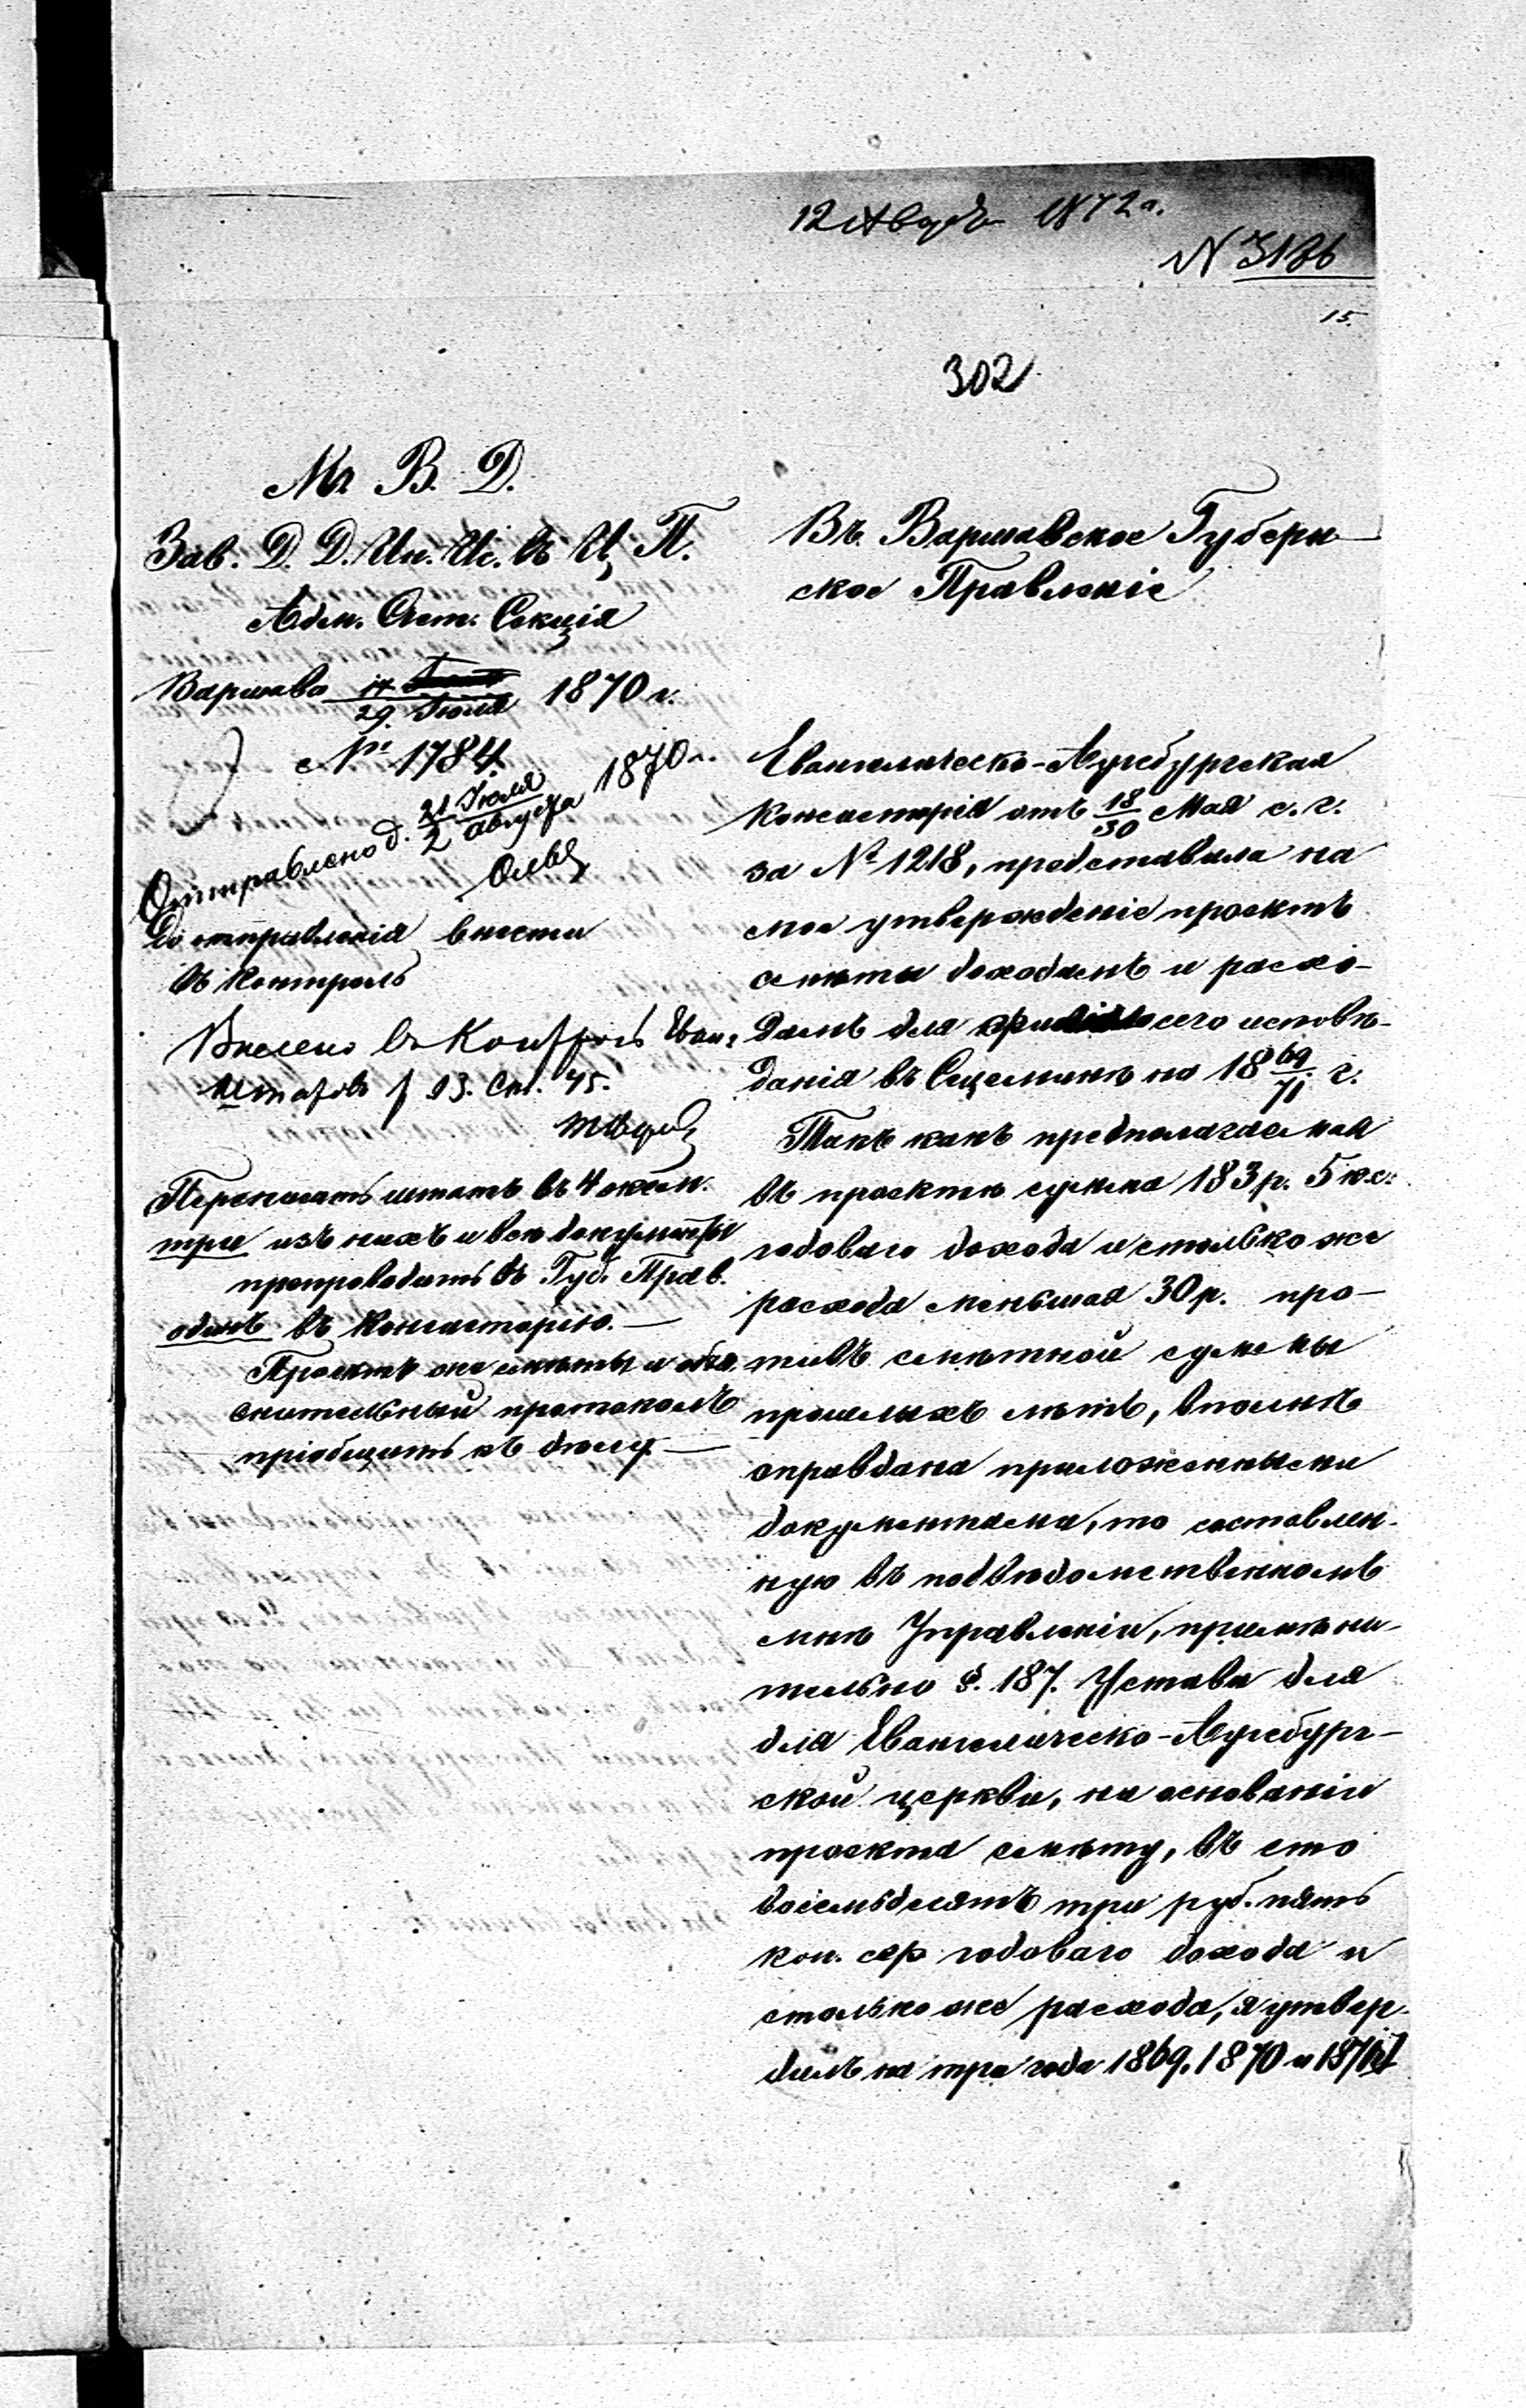 12 1872 г.
N 3186
15.
302
М. В. Д.
Зав. Д. Д. Ин. Ис. въ Ц. П.
Адм. Хоз. Секція
Варшава 17/29 Іюля 1870 г.
№ 1784.
Отправлено д. 21 Іюля/2 Августа 1870 г.
До отправленія внести
въ контроль
Внесено въ Контроль Еван.
Штатовъ f 93. Ст. 45.
Переписать штатъ въ 4 экзем.
три изъ нихъ и все документы
препроводить въ Губ. Прав.
одинъ въ Консисторію. —
Проектъ же сметы и объя-
снительный протоколъ
пріобщить къ делу. —
Въ Варшавское Губерн-
ское Правленіе
Евангелическо-Аугсбургская
Консисторія отъ 18/30 Мая с. г.
за № 1218, представила на
мое утвержденіе проектъ
сметы доходамъ и расхо-
дамъ для сего исповѣ-
данія въ Сецеминѣ на 18 69/71 г.
Такъ какъ предполагаемая
въ проектѣ сумма 183 р. 5 кс.
годоваго дохода и столько же
расхода меньшая 30 р. про-
тивъ смѣтной суммы
прошлыхъ лѣтъ, вполнѣ
оправдана приложенными
документами, то составлен-
ную въ подвѣдомственномъ
мнѣ Управленіи, примѣни-
тельно §. 187. Устава для
для Евангелическо-Аугсбург-
ской церкви, на основаніи
проекта смѣту, въ сто
восемьдесятъ три руб. пять
коп. сер годоваго дохода и
столько же расхода, я утвер-
дилъ на три года 1869, 1870 и 1871